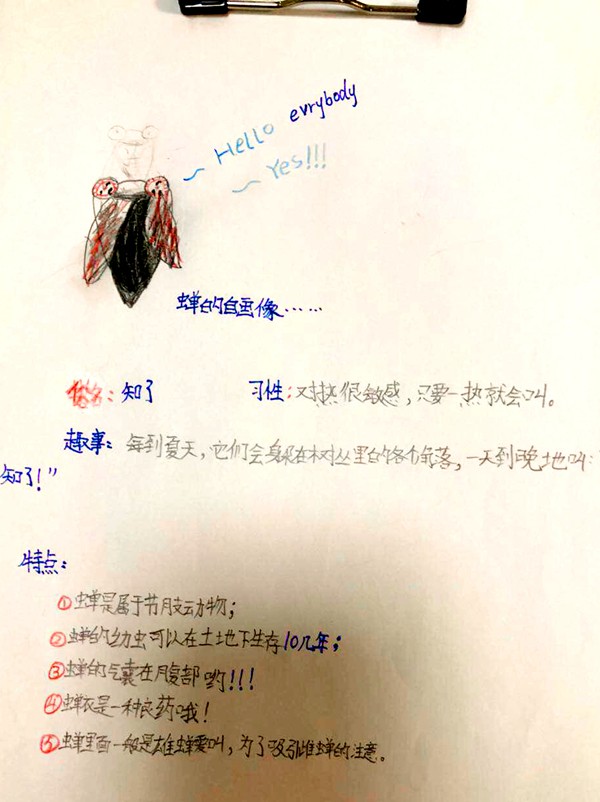 Hello evrybody
Yes!!!
蝉的自画像……
俗名：知了 习性：对热很敏感，只要一热就会叫。
趣事：每到夏天，它们会躲在树丛里的各个角落，一天到晚地叫：“
知了！”
特点：
①蝉是属于节肢动物；
②蝉的幼虫可以在土地下生存10几年；
③蝉的气囊在腹部哟!!!
④蝉衣是一种良药哦！
⑤蝉里面一般是雄蝉爱叫，为了吸引雌蝉的注意。